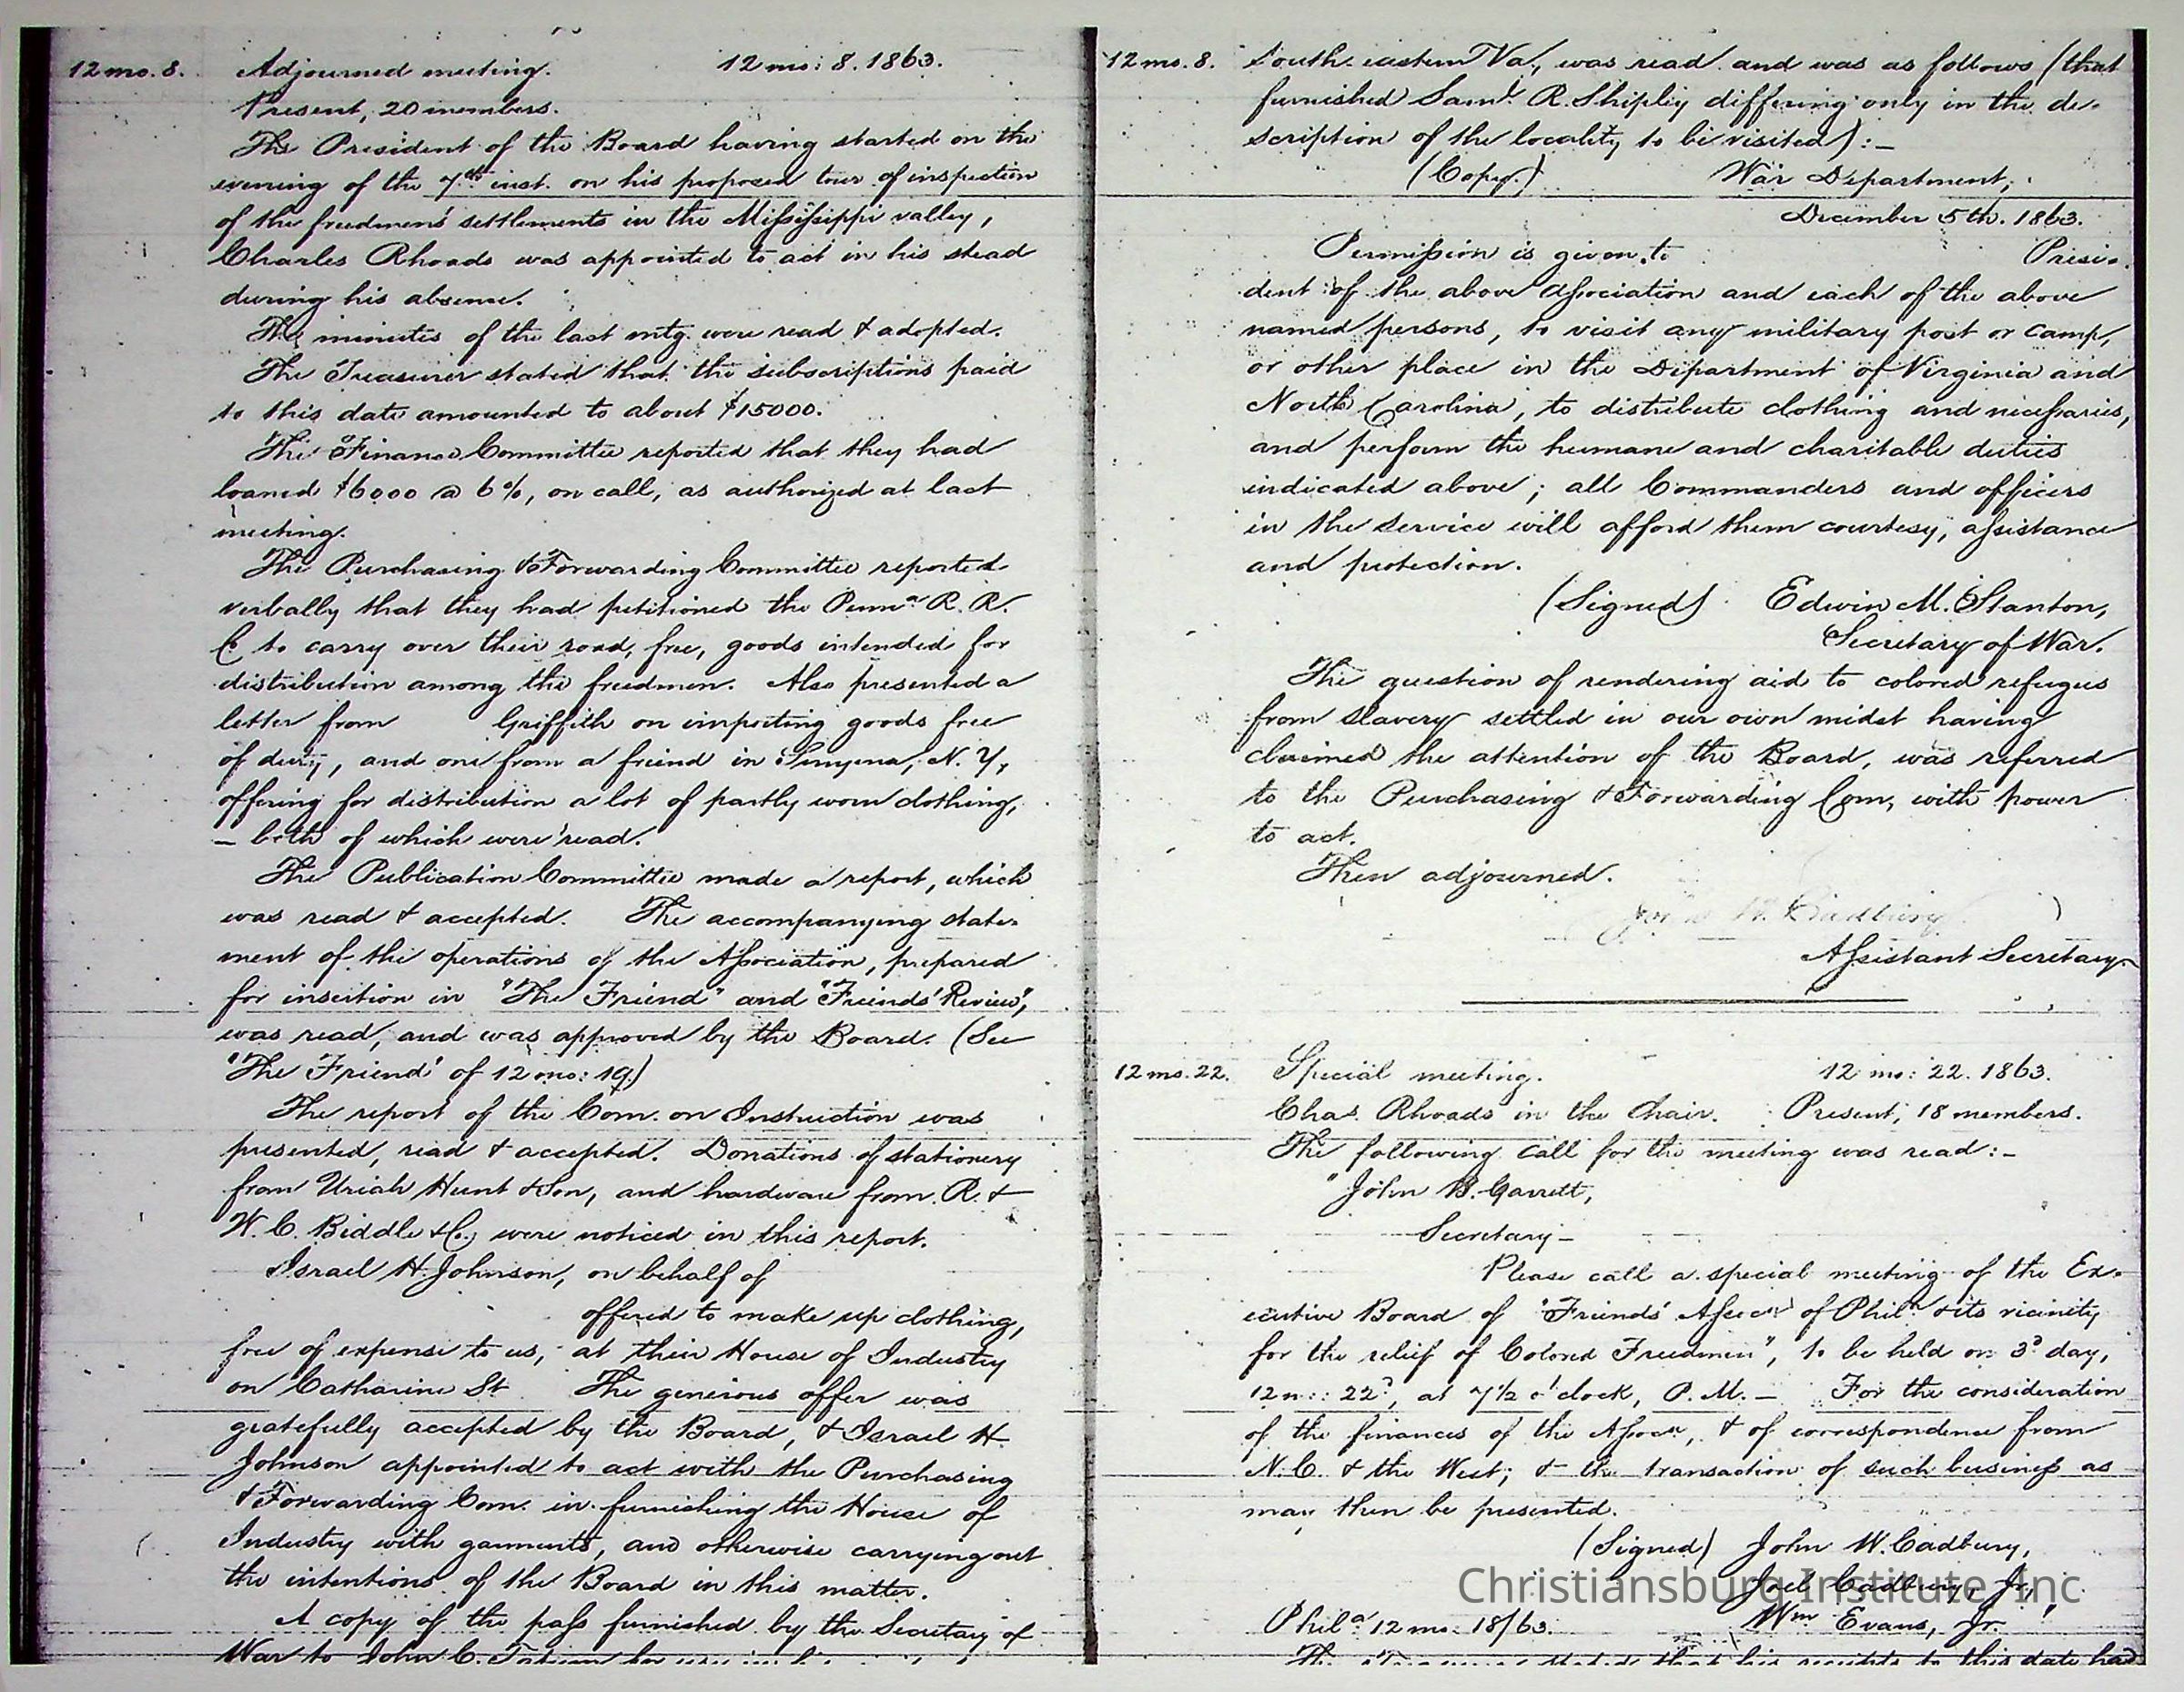 12 mo. 8. Adjourned meeting. 12 mo: 8. 1863.
Present, 20 members.
The President of the Board having started on the
evening of the 7th inst. on his proposed tour of inspection
of the freedmen's settlements in the Mississippi valley,
Charles Rhoads was appointed to act in his stead
during his absence.
The minutes of the last mtg. were read & adopted.
The Treasurer stated that the subscriptions paid
to this date amounted to about $15000.
The Finance Committee reported that they had
loaned $6000 @ 6%, on call, as authorized at last
meeting.
The Purchasing & Forwarding Committee reported
verbally that they had petitioned the Penna. R. R.
Co to carry over their road, free, goods intended for
distribution among the freedmen. Also presented a
letter from Griffith on importing goods free
of duty, and one from a friend in Smyrna, N. Y,
offering for distribution a lot of partly worn clothing,
— both of which were read.
The Publication Committee made a report, which
was read & accepted. The accompanying state-
ment of the operations of the Association, prepared
for insertion in "The Friend" and "Friends' Review",
was read, and was approved by the Board. (See
"The Friend" of 12 mo: 19.)
The report of the Com. on Instruction was
presented, read & accepted. Donations of stationery
from Uriah Hunt & Son, and hardware from R. &
W. C. Biddle & Co., were noticed in this report.
Israel H. Johnson, on behalf of
offered to make up clothing,
free of expense to us, at their House of Industry
on Catharine St. The generous offer was
gratefully accepted by the Board, & Israel H.
Johnson appointed to act with the Purchasing
& Forwarding Com. in furnishing the House of
Industry with garments, and otherwise carrying out
the intentions of the Board in this matter.
A copy of the pass furnished by the Secretary of
War to John C.
12 mo. 8. South eastern Va, was read and was as follows (that
furnished Saml. R. Shipley differing only in the de-
scription of the locality to be visited):—
(Copy.) War Department,
December 5th. 1863.
Permission is given to Presi-
dent of the above Association and each of the above
named persons, to visit any military post or camp,
or other place in the Department of Virginia and
North Carolina, to distribute clothing and necessaries,
and perform the humane and charitable duties
indicated above; all Commanders and officers
in the service will afford them courtesy, assistance
and protection.
(Signed) Edwin M. Stanton,
Secretary of War.
The question of rendering aid to colored refugees
from slavery settled in our own midst having
claimed the attention of the Board, was referred
to the Purchasing & Forwarding Com, with power
to act.
Then adjourned.
John W. Cadbury
Assistant Secretary
12 mo. 22. Special meeting. 12 mo: 22. 1863.
Chas. Rhoads in the Chair. Present, 18 members.
The following call for the meeting was read:—
"John B. Garrett,
Secretary—
Please call a special meeting of the Ex-
ecutive Board of "Friends' Assocn of Phila & its vicinity
for the relief of Colored Freedmen", to be held on 3d day,
12 mo: 22d, at 7½ o'clock, P. M. — For the consideration
of the finances of the Assocn, & of correspondence from
N. C. & the West; & the transaction of such business as
may then be presented.
(Signed) John W. Cadbury,
Joel Cadbury, Jr,
Phila 12 mo: 18/63. Wm Evans, Jr."
The stated that his receipts to this date had
Christiansburg Institute, Inc